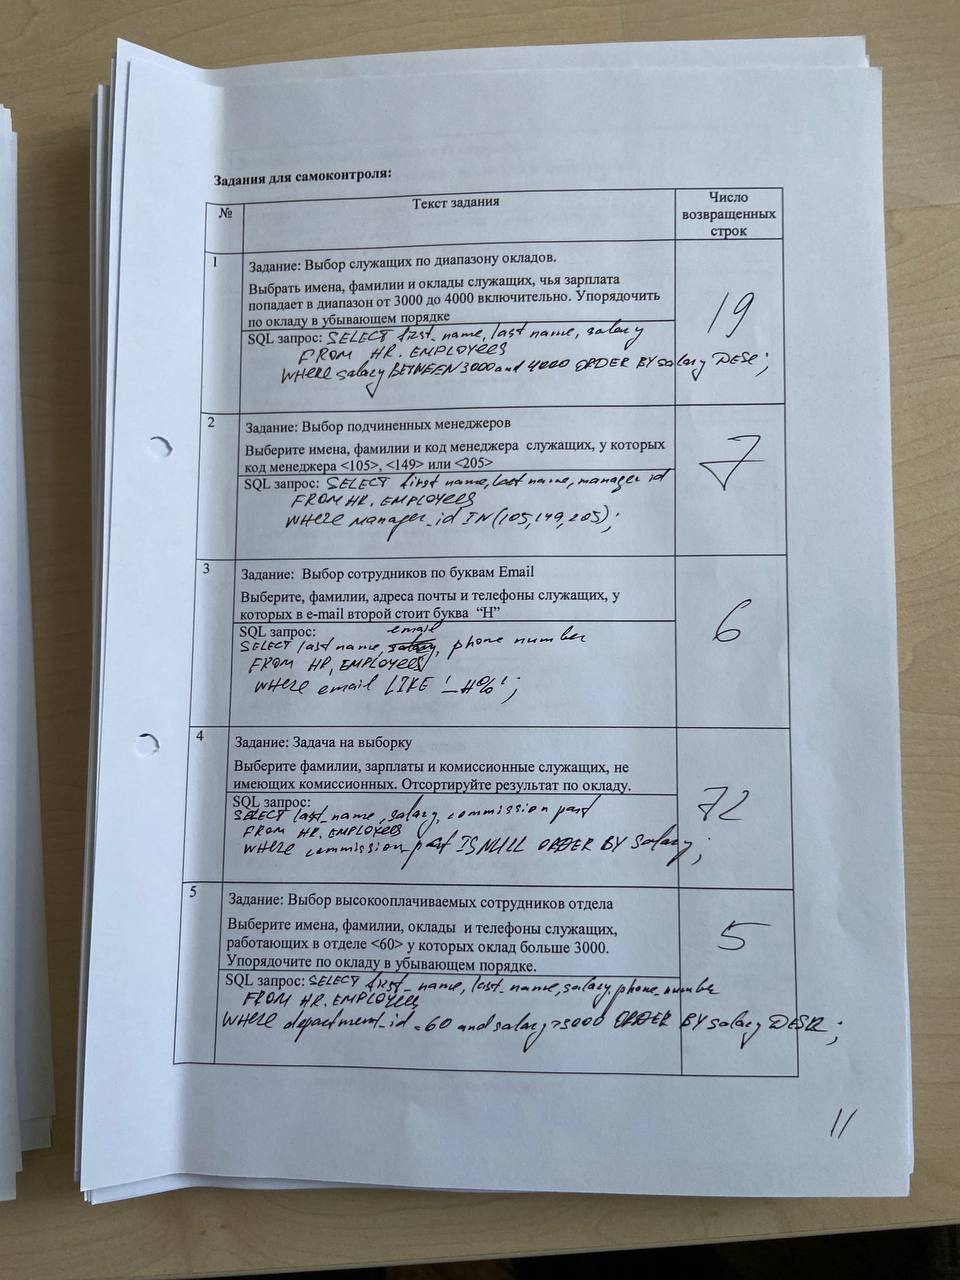 Задания для самоконтроля:
№ Текст задания Число возвращенных строк
1 Задание: Выбор служащих по диапазону окладов.
Выбрать имена, фамилии и оклады служащих, чья зарплата
попадает в диапазон от 3000 до 4000 включительно. Упорядочить
по окладу в убывающем порядке
19
SQL запрос: SELECT first_name, last name, salary
FROM HR. EMPLOYEES
WHERE salary BETWEEN 3000 and 4000 ORDER BY salary DESC;
2 Задание: Выбор подчиненных менеджеров
Выберите имена, фамилии и код менеджера служащих, у которых
код менеджера <105>, <149> или <205>
7
SQL запрос: SELECT first name, last name, manager id
FROM HR. EMPLOYEES
WHERE manager_id IN (105, 149, 205);
3 Задание: Выбор сотрудников по буквам Email
Выберите, фамилии, адреса почты и телефоны служащих, у
которых в e-mail второй стоит буква “H”
6
SQL запрос: email
SELECT last name, salary, phone number
FROM HR, EMPLOYEES
WHERE email LIKE '_H%';
4 Задание: Задача на выборку
Выберите фамилии, зарплаты и комиссионные служащих, не
имеющих комиссионных. Отсортируйте результат по окладу.
72
SQL запрос:
SELECT last_name, salary, commission past
FROM HR. EMPLOYEES
WHERE commission_past IS NULL ORDER BY salary;
5 Задание: Выбор высокооплачиваемых сотрудников отдела
Выберите имена, фамилии, оклады и телефоны служащих,
работающих в отделе <60> у которых оклад больше 3000.
Упорядочите по окладу в убывающем порядке.
5
SQL запрос: SELECT first_name, last_name, salary, phone_number
FROM HR. EMPLOYEES
WHERE department_id = 60 and salary > 3000 ORDER BY salary DESC;
11